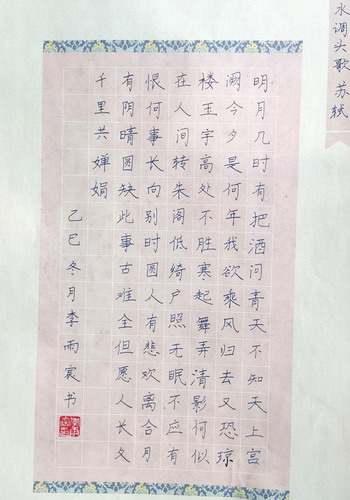 水调头歌 苏轼
明月几时有把酒问青天不知天上宫
阙今夕是何年我欲乘风归去又恐琼
楼玉宇高处不胜寒起舞弄清影何似
在人间转朱阁低绮户照无眠不应有
恨何事长向别时圆人有悲欢离合月
有阴晴圆缺此事古难全但愿人长久
千里共婵娟
乙巳冬月李雨宸书